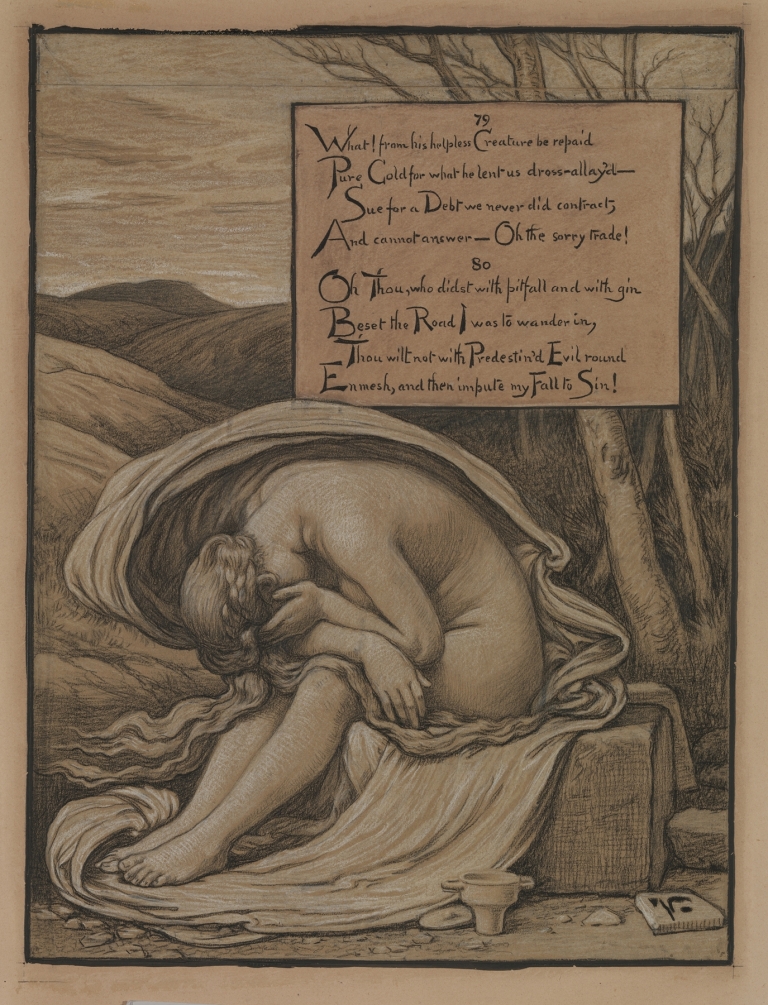 79
What! from his helpless Creature be repaid
Pure Gold for what he lent us dross-allay'd—
Sue for a Debt we never did contract,
And cannot answer — Oh the sorry trade!
80
Oh Thou, who didst with pitfall and with gin
Beset the Road I was to wander in,
Thou wilt not with Predestin'd Evil round
Enmesh, and then impute my Fall to Sin!